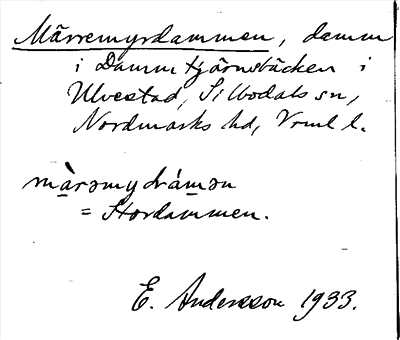 Märremyrdammen, damm
i Dammtjärnsbäcken i
Ulvestad, Silbodals sn,
Nordmarks hd, Vrml l.
màrəmydrámən
= Stordammen.
E. Andersson 1933.